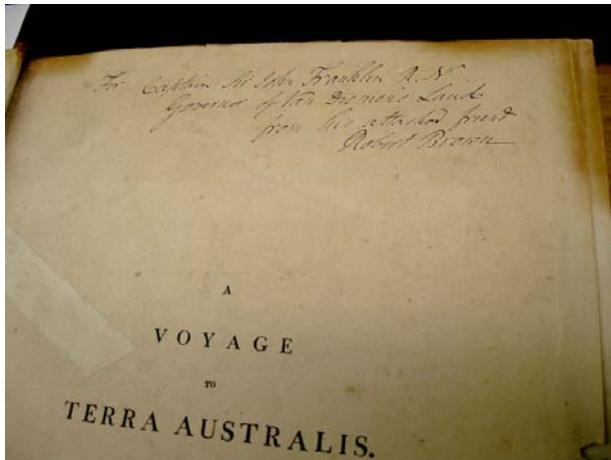 For Captain Sir John Franklin R.N.
Governor of Van Diemen's Land
from his attached friend
Robert Brown
A
VOYAGE
TO
TERRA AUSTRALIS.